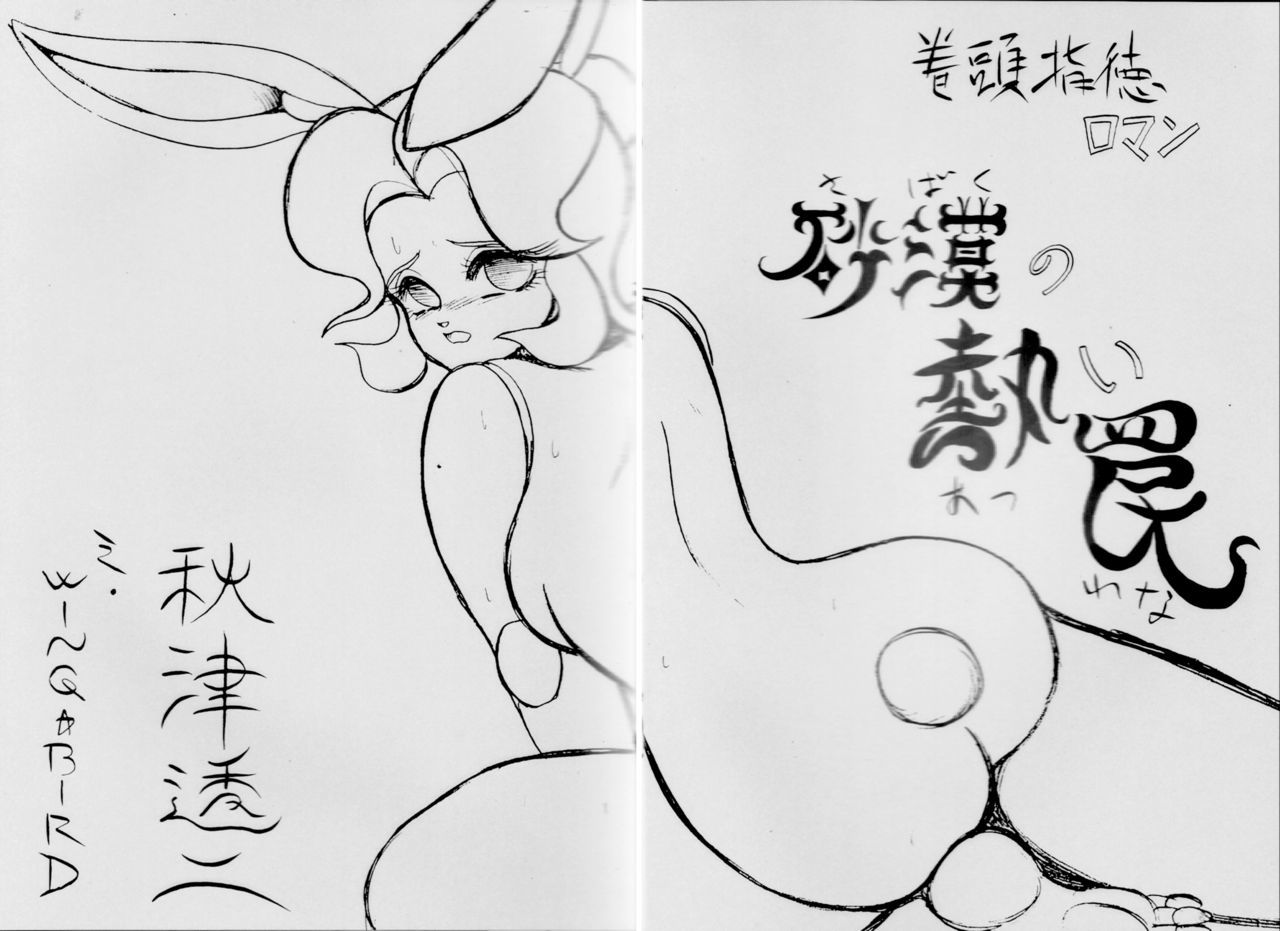 巻頭指徳
ロマン
さばく
砂漠の
熱い
あつ
罠
わな
秋津透二
ミ・WING☆BIRD